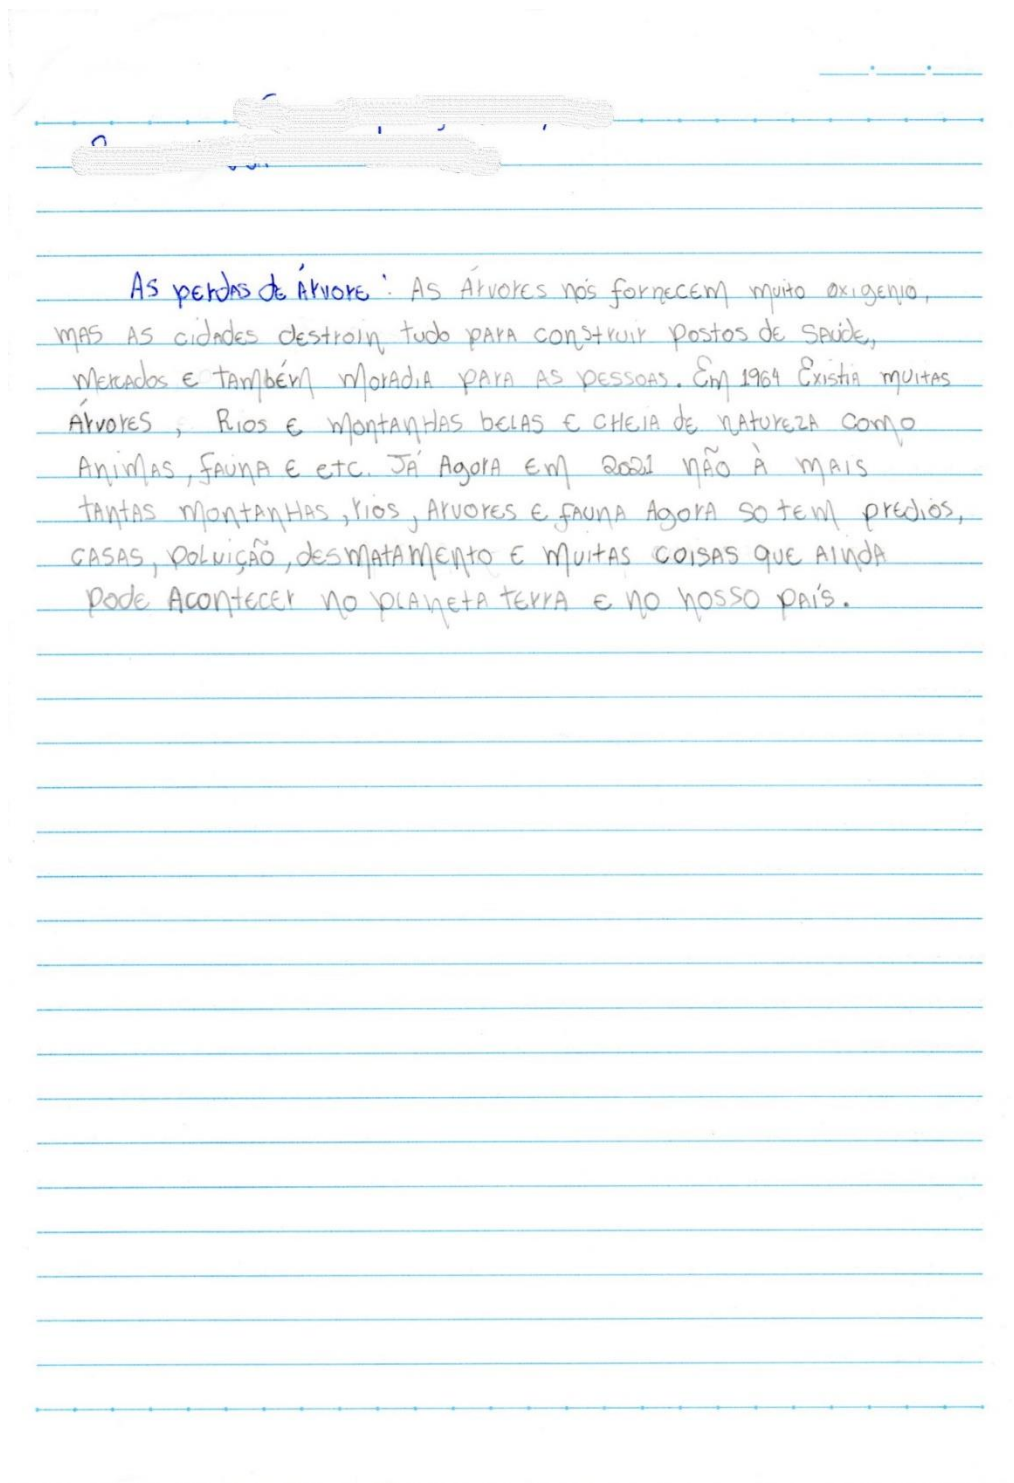 As perdas de Árvore: As Árvores nós fornecem muito oxigenio,
mas as cidades destroin tudo para construir postos de saúde,
mercados e também moradia para as pessoas. Em 1964 Existia muitas
Árvores, Rios e montanhas belas e cheia de natureza como
Animas, fauna e etc. Já Agora em 2021 não À mais
tantas montanhas, rios, Arvores e fauna Agora so tem predios,
casas, poluição, desmatamento e muitas coisas que Ainda
pode Acontecer no planeta terra e no nosso país.